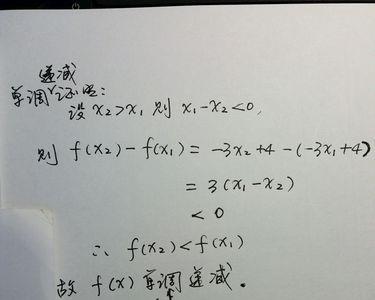 单调递减证明:
设 x₂>x₁ 则 x₁-x₂<0,
则 f(x₂)-f(x₁)= -3x₂+4-(-3x₁+4)
= 3(x₁-x₂)
<0
∴ f(x₂)<f(x₁)
故 f(x)单调递减。